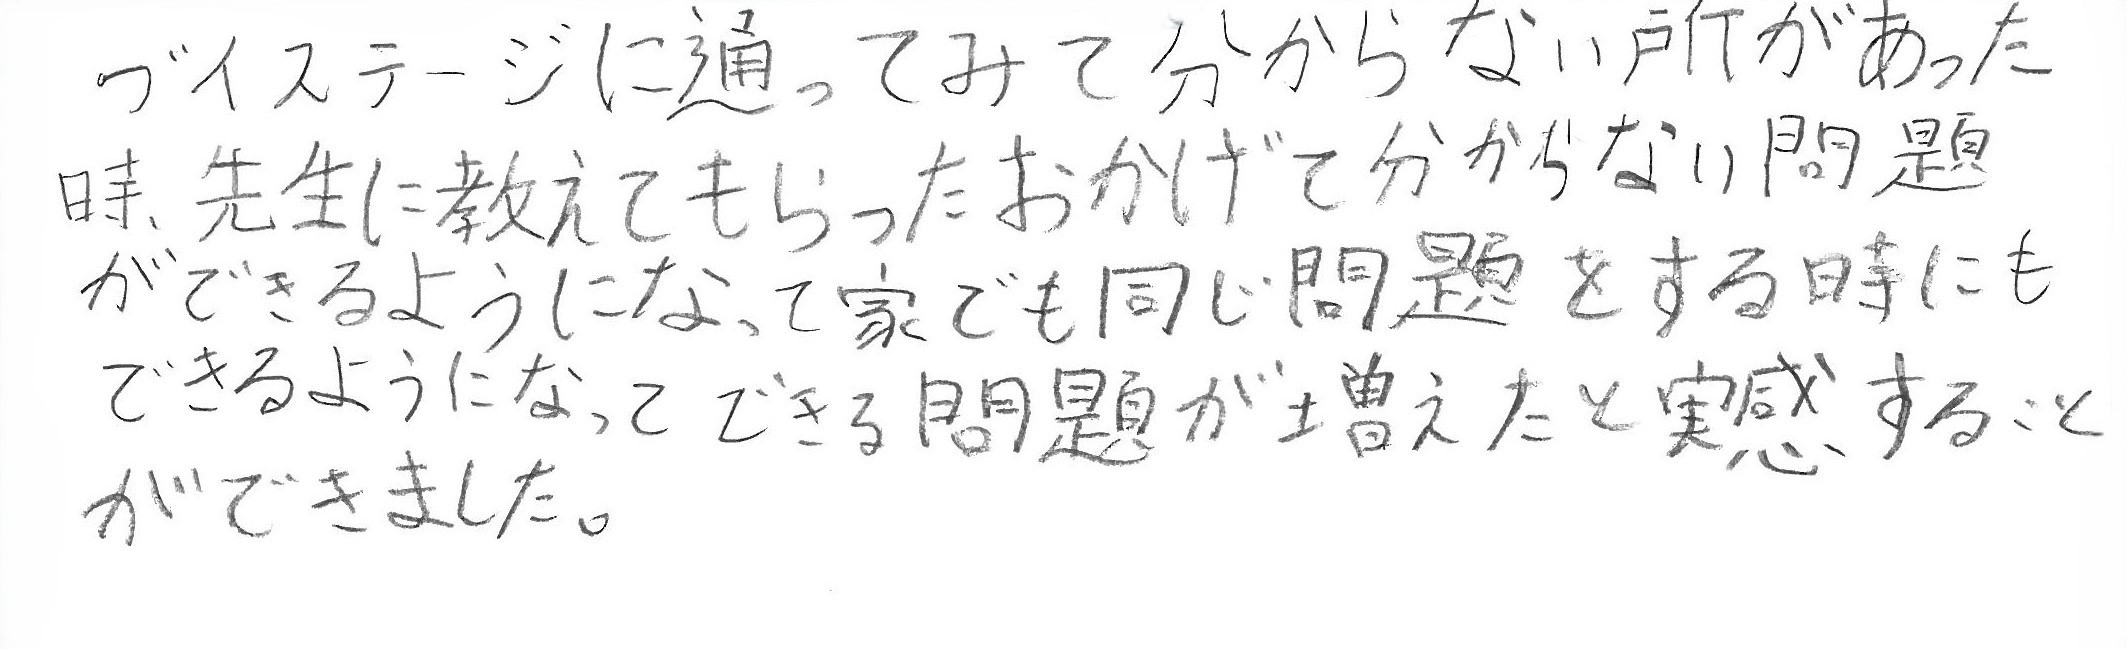 ブイステージに通ってみて分からない所があった
時、先生に教えてもらったおかげで分からない問題
ができるようになって家でも同じ問題をする時にも
できるようになってできる問題が増えたと実感すること
ができました。